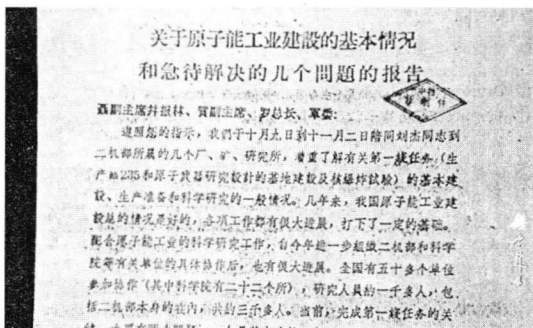 关于原子能工业建設的基本情况
和急待解决的几个問題的报告
聂副主席并报林、賀副主席、罗总长、軍委：
遵照您的指示，我們于十月九日到十一月二日陪同刘杰同志到
二机部所属的几个厂、矿、研究所，着重了解有关第一綫任务（生
产鈾235和原子武器研究設計的基地建設及核爆炸試驗）的基本建
設、生产准备和科学研究的一般情况。几年来，我国原子能工业建
設总的情况是好的，各項工作都有很大进展，打下了一定的基础。
配合原子能工业的科学研究工作，自今年进一步組織二机部和科学
院等有关单位的具体协作后，也有很大进展。全国有五十多个单位
参加协作（其中科学院有二十二个所），研究人員約一千多人，包
括二机部本身的在內，共約三千多人。当前，完成第一綫任务的关